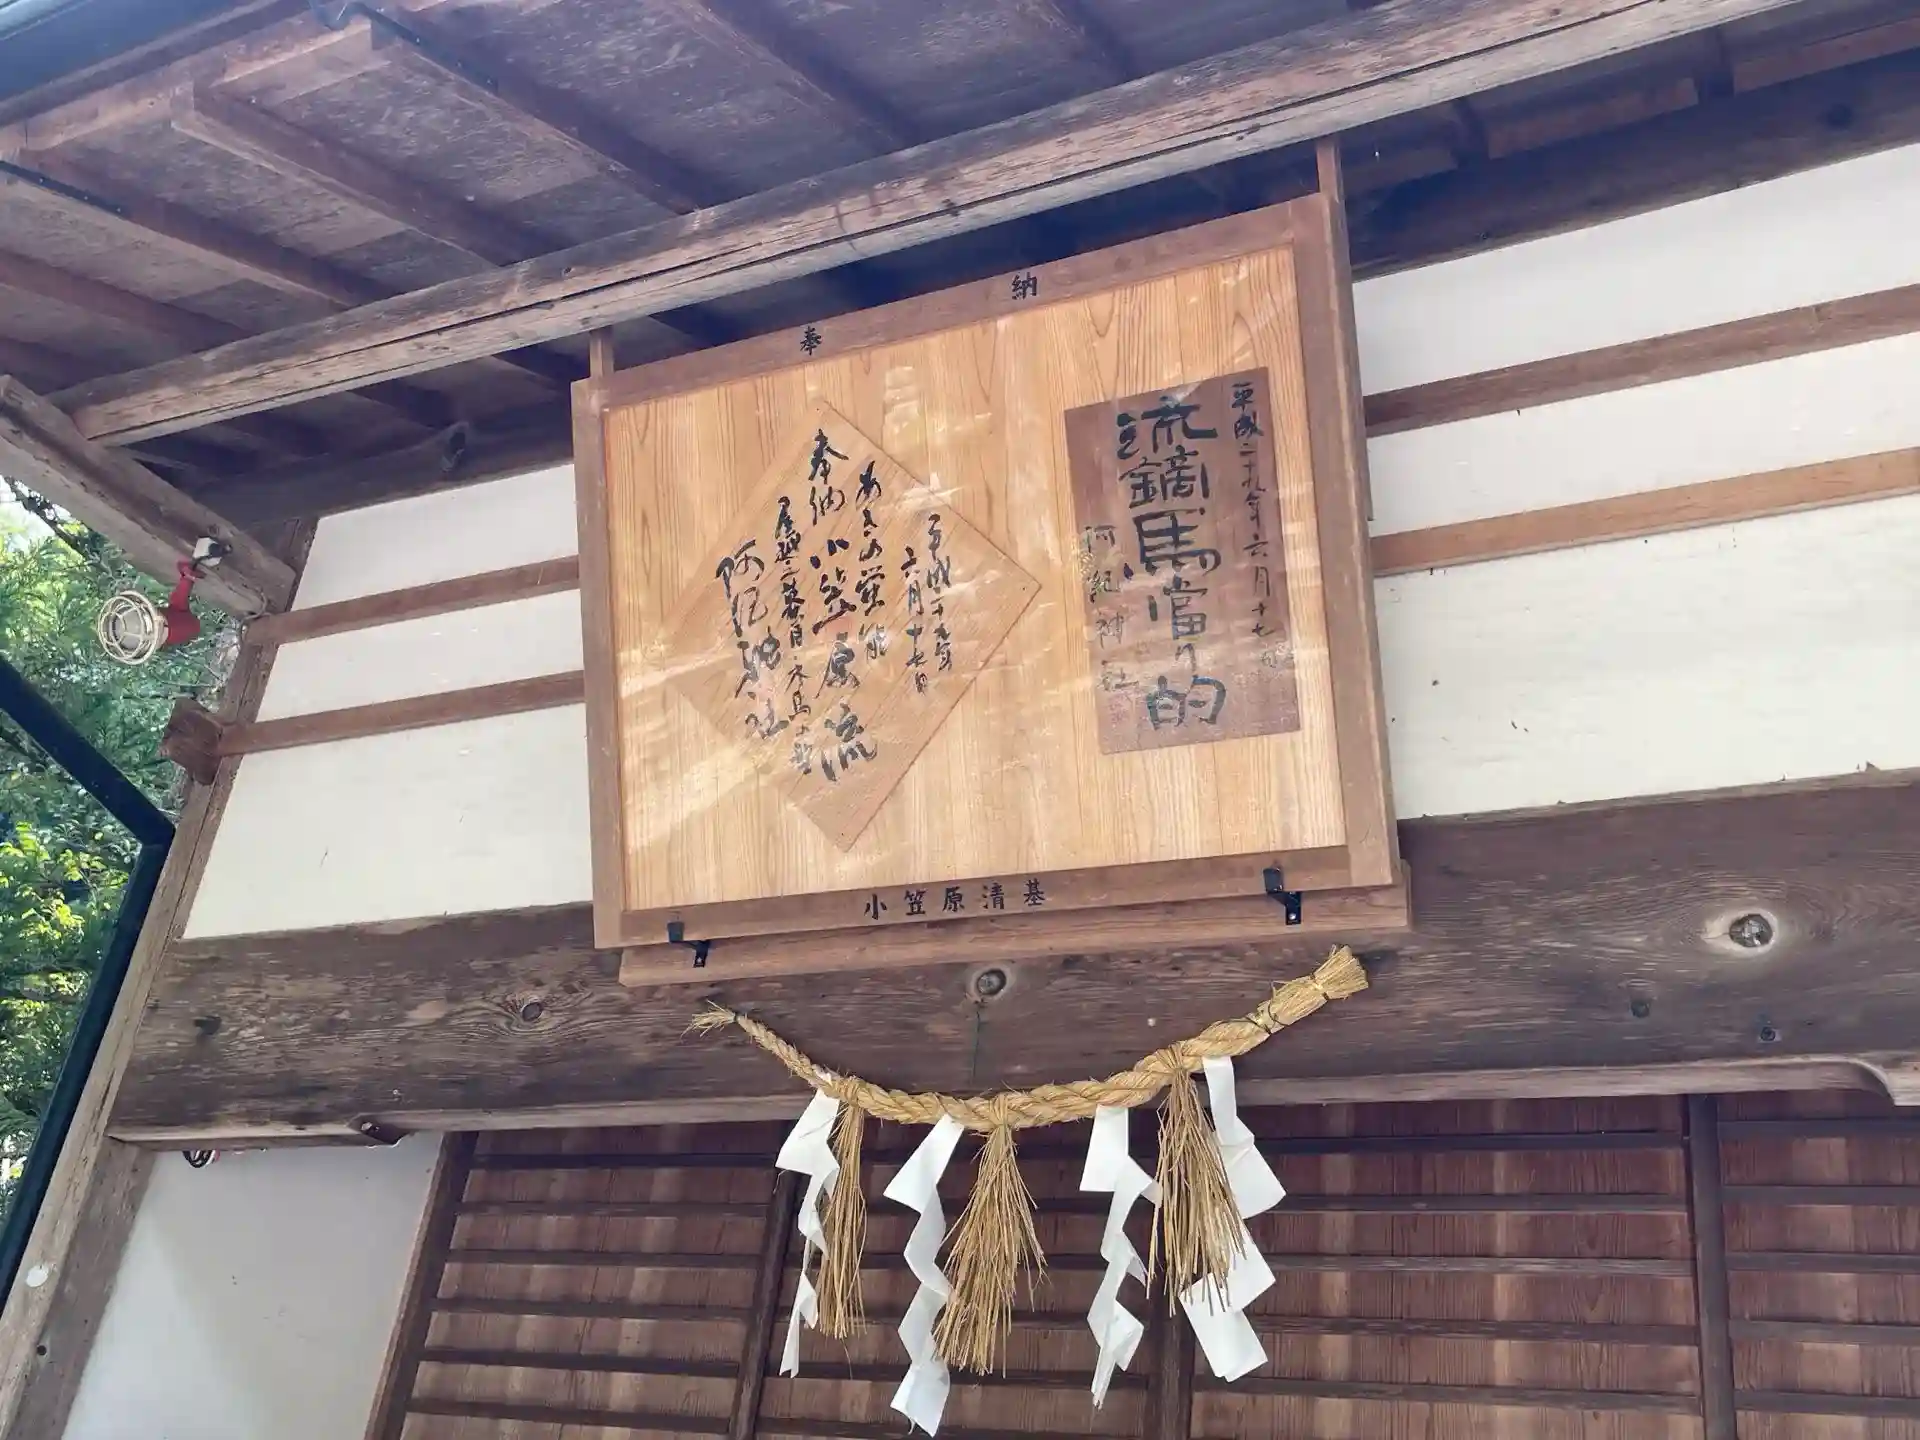 奉納
平成二十九年六月十七日
流鏑馬當り的
阿紀神社
平成二十九年
六月十七日
あきの蛍能
奉納小笠原流
阿紀神社
小笠原清基